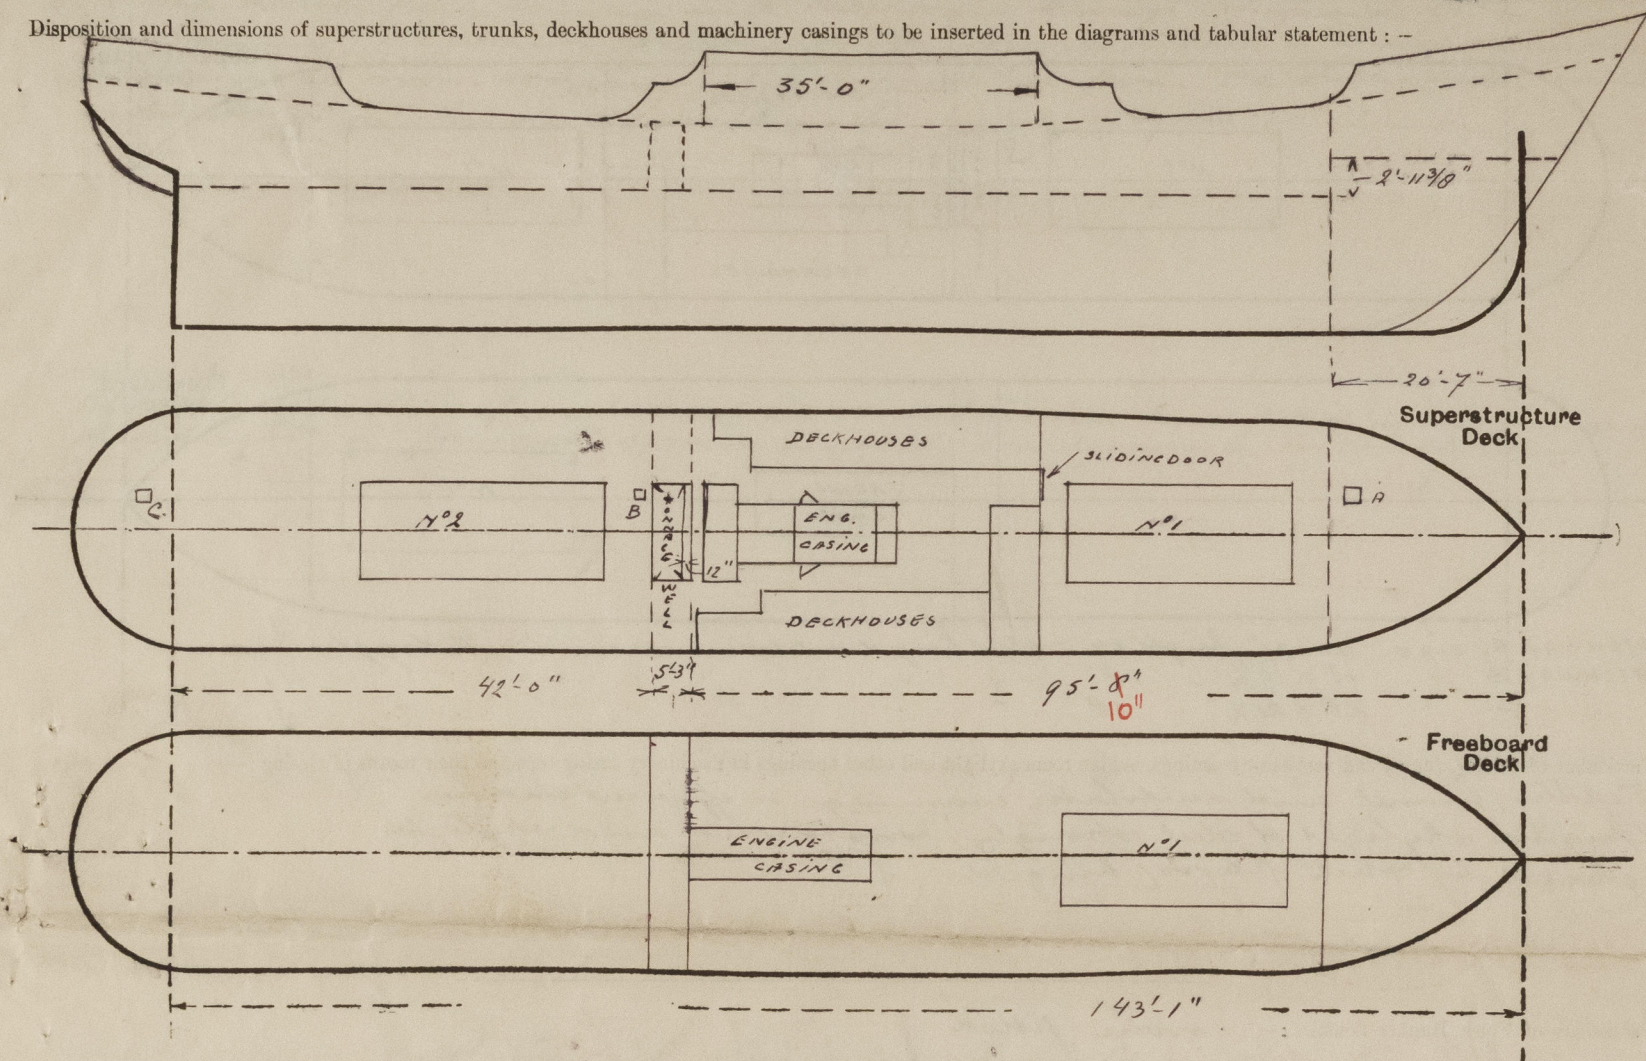 Disposition and dimensions of superstructures, trunks, deckhouses and machinery casings to be inserted in the diagrams and tabular statement : —
35'-0"
2'-11 3/8"
20'-7"
Superstructure
Deck
DECKHOUSES
SLIDING DOOR
C.
No 2
B
TONNAGE
WELL
12"
ENG.
CASING
No 1
A
DECKHOUSES
42'-0"
5'-3"
95'-8"
10"
Freeboard
Deck
ENGINE
CASING
No 1
143'-1"